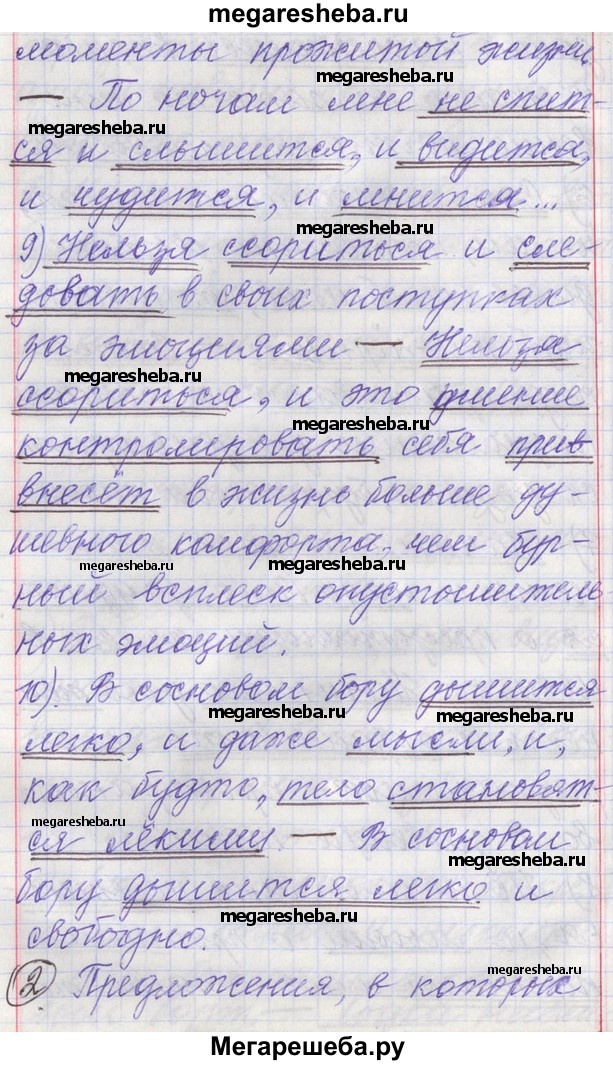 megaresheba.ru
моменты прожитой жизни.
megaresheba.ru
— По ночам мне не спит-
megaresheba.ru
ся и слышится, и видится,
megaresheba.ru
и чудится, и мнится...
megaresheba.ru
9) Нельзя ссориться и сле-
довать в своих поступках
за эмоциями — Нельзя
megaresheba.ru
ссориться, и это умение
megaresheba.ru
контролировать себя прив
внесёт в жизнь больше ду-
шевного комфорта, чем бур-
megaresheba.ru
ный всплеск опустошитель-
ных эмоций.
10). В сосновом бору дышится
megaresheba.ru
легко, и даже мысли, и,
как будто, тело становят-
megaresheba.ru
ся лёкими — В сосновом
megaresheba.ru
бору дышится легко и
megaresheba.ru
свободно.
megaresheba.ru
2 Предложения, в которых
Мегарешеба.ру